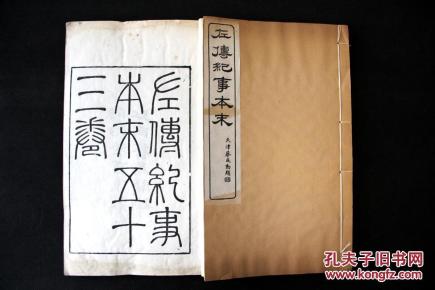 左傳紀事
本末五十
三卷
左傳紀事本末
天津
題
孔夫子旧书网
www.kongfz.com